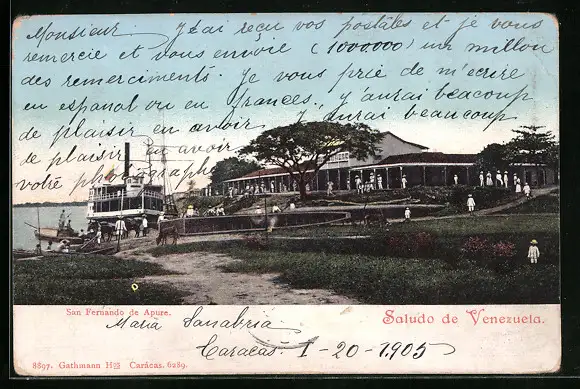 Monsieur J'ai reçu vos postales et je vous
remercie et vous envoie (1000000) un millon
des remerciments. Je vous prie de m'ecrire
en español ou en frances, y j'aurai beaucoup
de plaisir en avoir J'aurai beaucoup
de plaisir en avoir
votré photographie
San Fernando de Apure.
Saludo de Venezuela.
Maria Sanabria
Caracas. 1-20-1905
8897. Gathmann Hos Carácas. 6289.